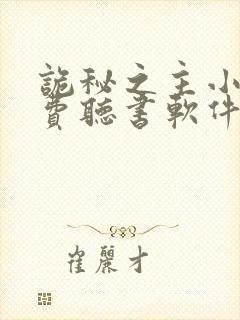 詭秘之主小
費聽書軟件
崔麗才